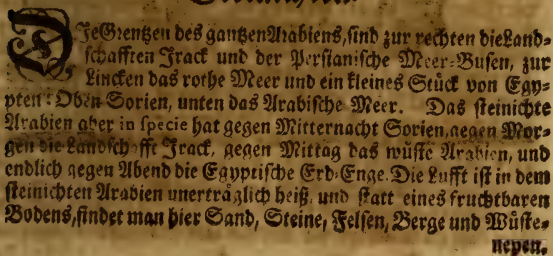 DJe Grentzen des gantzen Arabiens, sind zur rechten die Land-
schafften Irack und der Persianische Meer-Busen, zur
Lincken das rothe Meer und ein kleines Stück von Egy-
pten: Oben Sorien, unten das Arabische Meer. Das steinichte
Arabien aber in specie hat gegen Mitternacht Sorien, gegen Mor-
gen die Landschafft Irack, gegen Mittag das wüste Arabien, und
endlich gegen Abend die Egyptische Erd-Enge. Die Lufft ist in dem
steinichten Arabien unerträglich heiß, und statt eines fruchtbaren
Bodens, findet man hier Sand, Steine, Felsen, Berge und Wüste-
neyen.